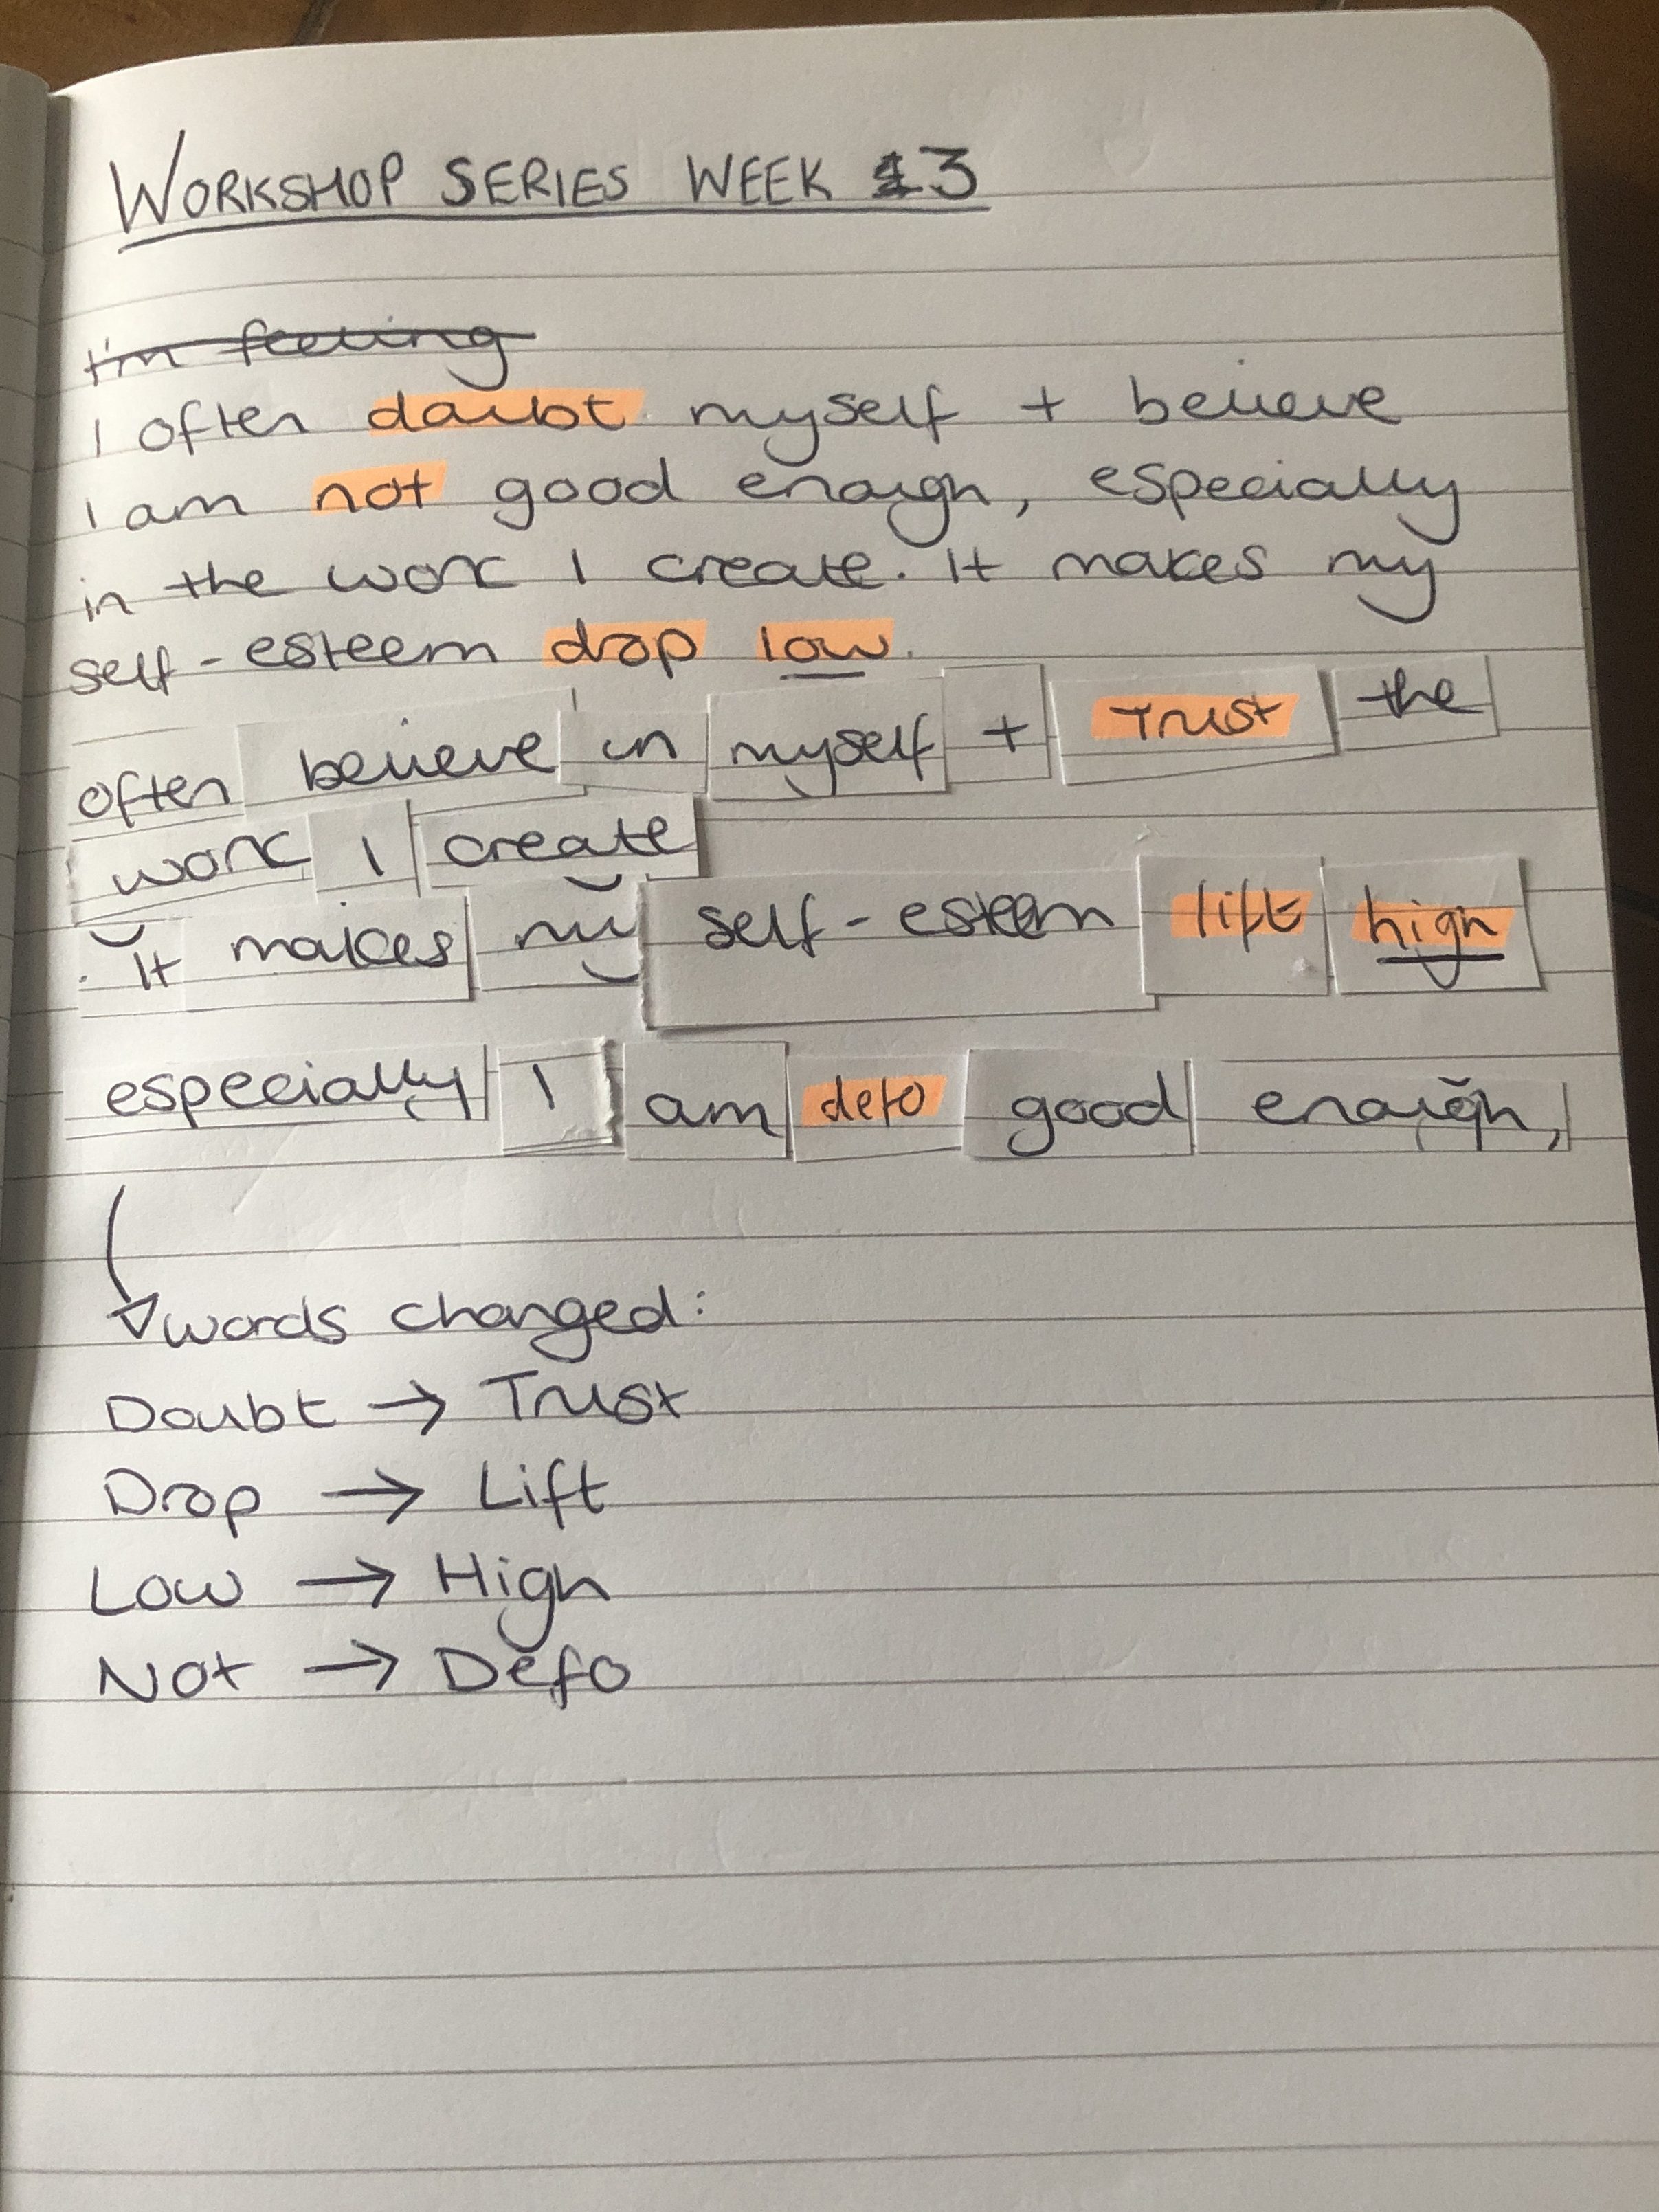 WORKSHOP SERIES WEEK 3
I'm feeling
I often doubt myself + believe
I am not good enough, especially
in the work I create. It makes my
self-esteem drop low.
often believe in myself + Trust the
work I create
. It makes my self-esteem lift high
especially I am defo good enough,
words changed:
Doubt → Trust
Drop → Lift
Low → High
Not → Defo